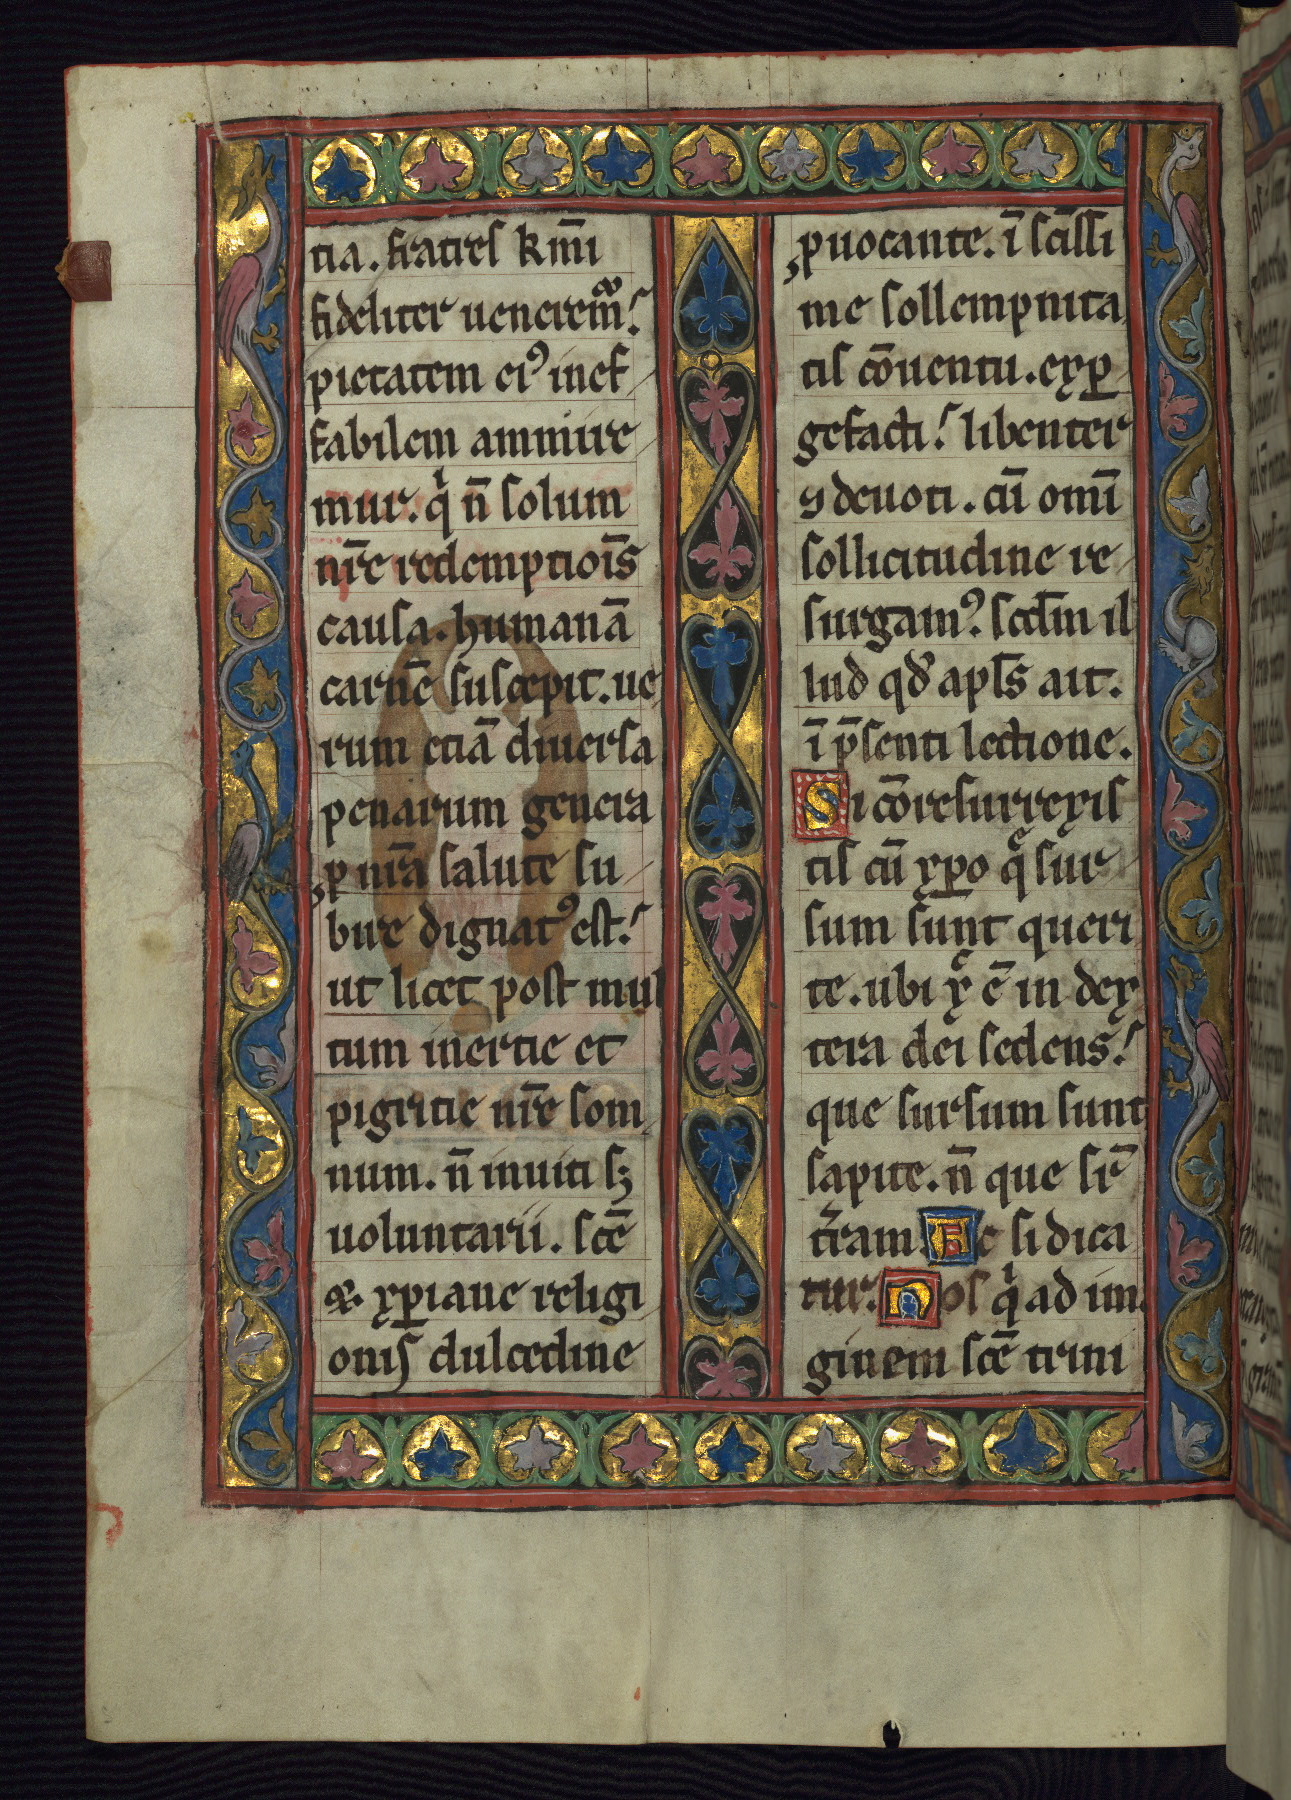 tia. fratres km̄i
fideliter ueneremꝰ!
pietatem eiꝰ inef
fabilem ammire
mur. qͥ n̄ solum
nr̄e redemptiōis
causa. humanā
carnē suscepit. ue
rum etiā diuersa
penarum genera
ꝓ nr̄a salute su
bire dignatꝰ est!
ut licet post mul
tum inertie et
pigritie nr̄e som
num. n̄ inuiti sꝫ
uoluntarii. scē
xp̄iane religi
onis dulcedine
ꝓuocante. ī scīssi
me sollempnita
tis cōuentu. exꝑ
gefacti! libenter
ꝯ deuoti. cū omī
sollicitudine re
surgamꝰ. scd̄m il
lud qd̓ apl̄s ait.
ī p̄senti lectione.
Si cōresurrexis
tis cū xp̄o q̄ sur
sum sunt queri
te. ubi xp̄c ē in dex
tera dei sedens!
que sursum sunt
sapite. n̄ que sr̄
tr̄am. Ac si dica
tur. Nos qͥ ad im
ginem scē trini